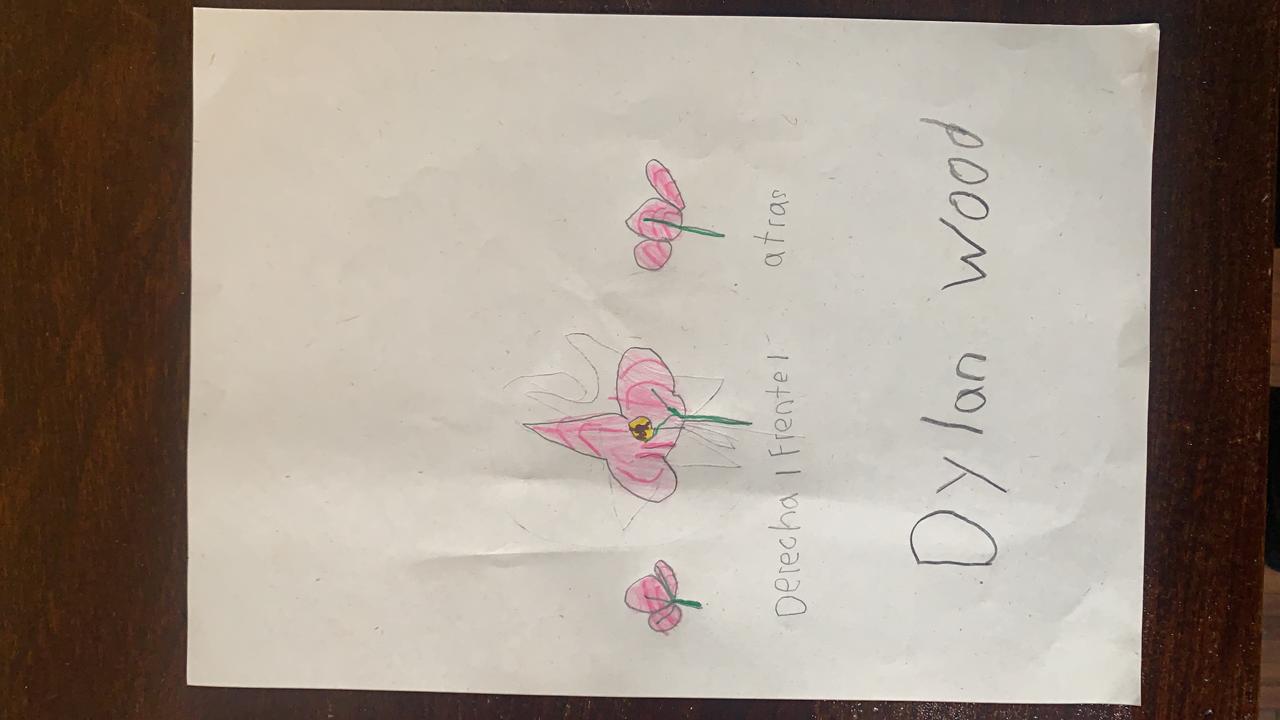 Derecha | Frente | atras
Dylan wood